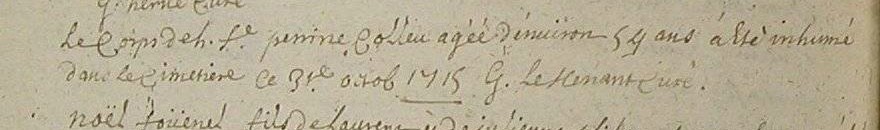 Le Corps de h. fe. perrine Colleu agéé d'enuiron 54 ans á Eté inhumé
dans le Cimetiere Ce 31e. octob 1715 G. Le Henant Curé.
noël fils de Laurens